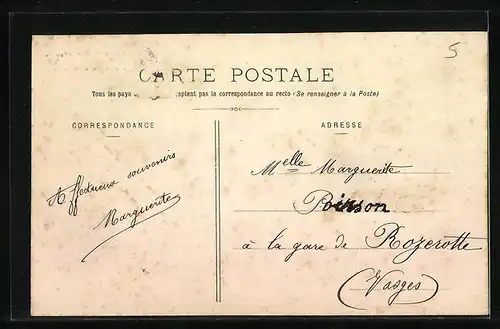 5
CARTE POSTALE
Tous les pays ptent pas la correspondance au recto (Se renseigner à la Poste)
CORRESPONDANCE
ADRESSE
Affectueux souvenirs
Marguerite
Melle Marguerite
Poirson
à la gare de Rozerotte
(Vosges)